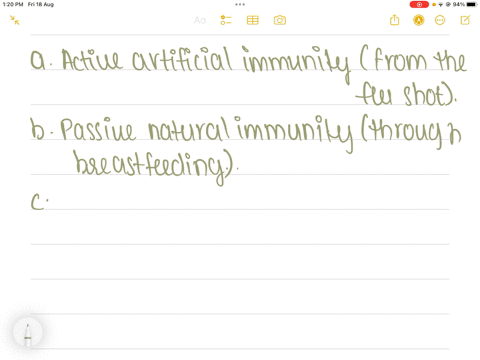 1:20 PM Fri 18 Aug
94%
Aa
a. Active artificial immunity (from the
flu shot).
b. Passive natural immunity (through
breastfeeding).
c.